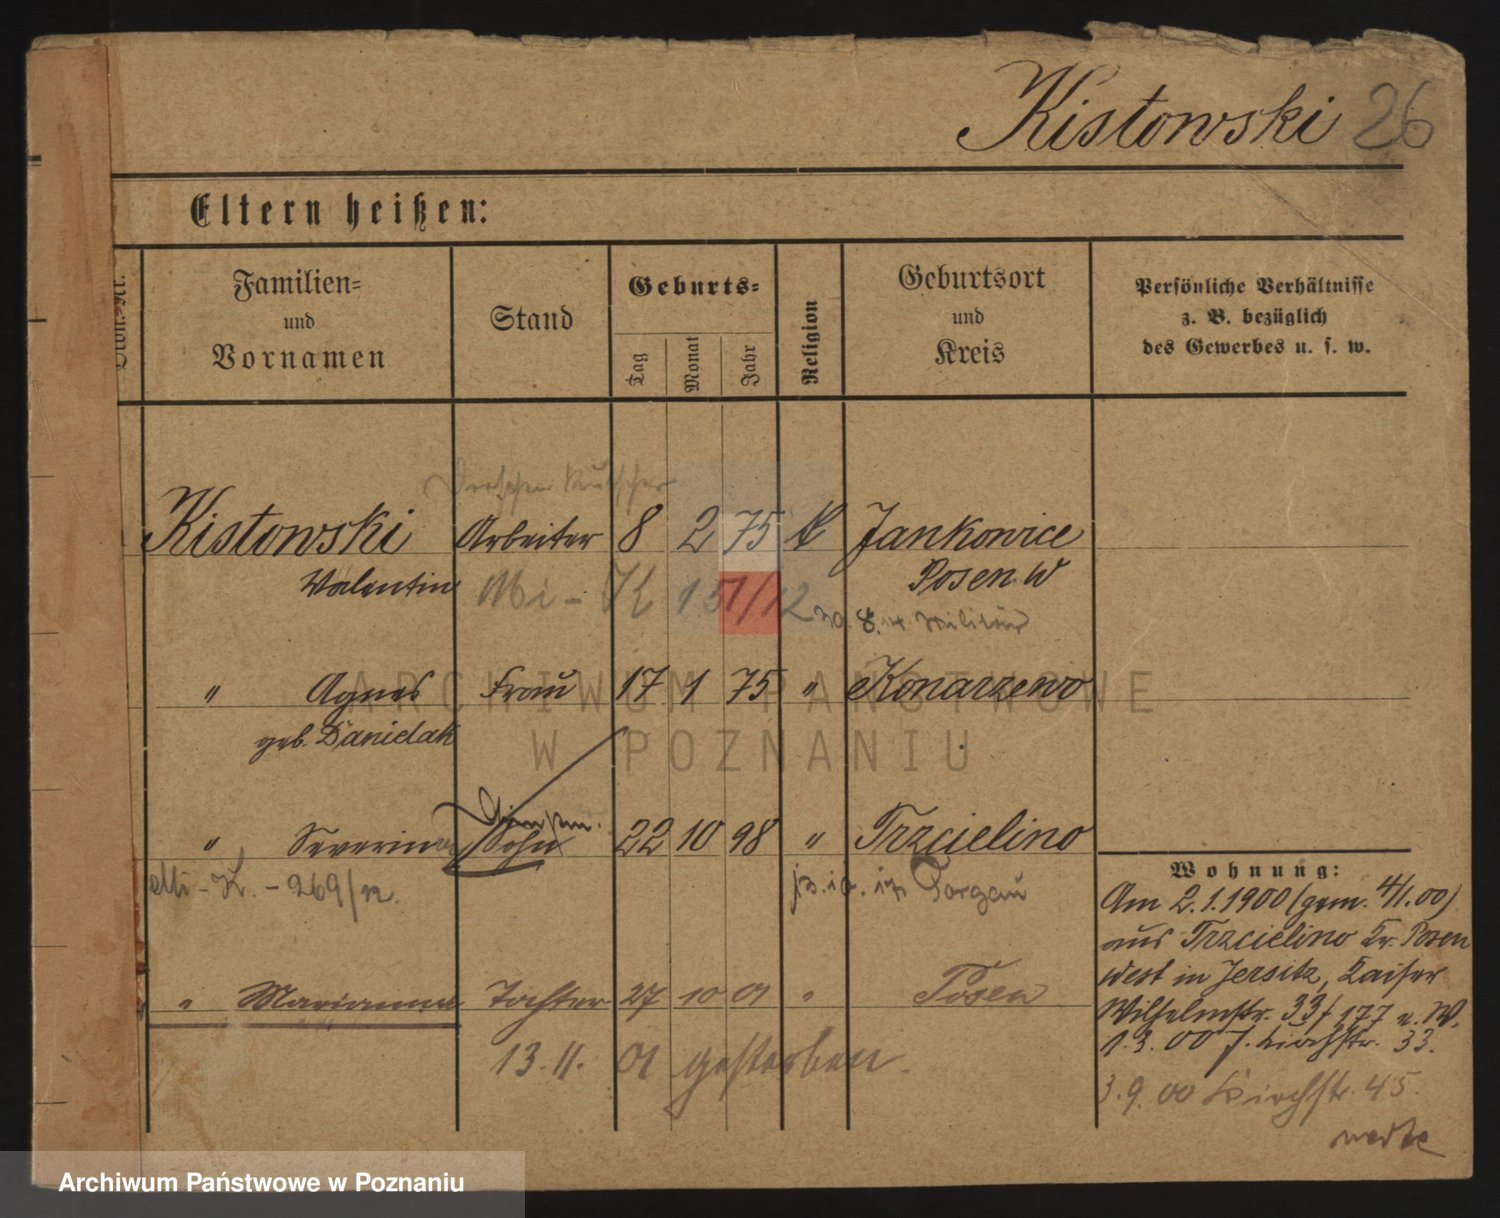 Kistowski 26
Eltern heißen:
Familien=
und
Vornamen
Stand
Geburts=
Tag
Monat
Jahr
Religion
Geburtsort
und
Kreis
Persönliche Verhältnisse
z. B. bezüglich
des Gewerbes u. s. w.
Droschken Kutscher
Kistowski Arbeiter 8 2 75 k Jankowice
Valentin Posen W
Mi - K 151/12 20. 8. 14 Militär
" Agnes Frau 17 1 75 " Konarzewo
geb. Danielak
" Severin Sohn 22 10 98 " Trzcielino
Mi - K. - 269/12. Torgau
" Marianna Tochter 27 10 01 " Posen
13. 11. 01 gestorben.
Wohnung:
Am 2. 1. 1900 (gem. 4/1. 00)
aus Trzcielino Kr. Posen
West in Jersitz, Kaiser
Wilhelmstr. 33
1. 3. 00 Kirchstr. 33.
3. 9. 00 Kirchstr. 45
ARCHIWUM PAŃSTWOWE
W POZNANIU
Archiwum Państwowe w Poznaniu